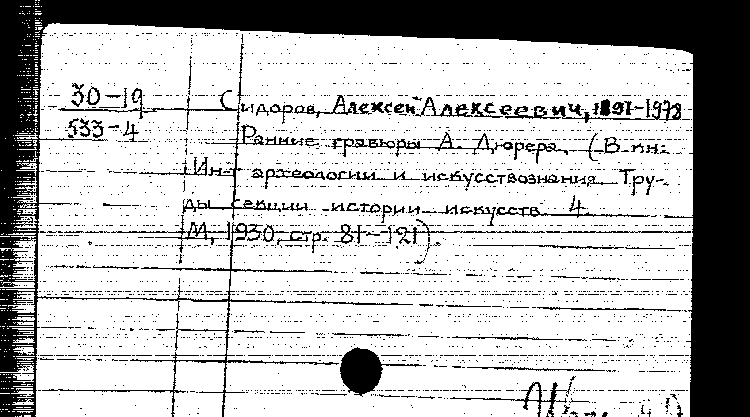 30-19
533-4
Сидоров, Алексей Алексеевич, 1891-1978
Ранние гравюры А. Дюрера. (В кн:
Ин-т археологии и искусствознания. Тру-
ды секции истории искусств. 4.
М, 1930, стр. 81-121).